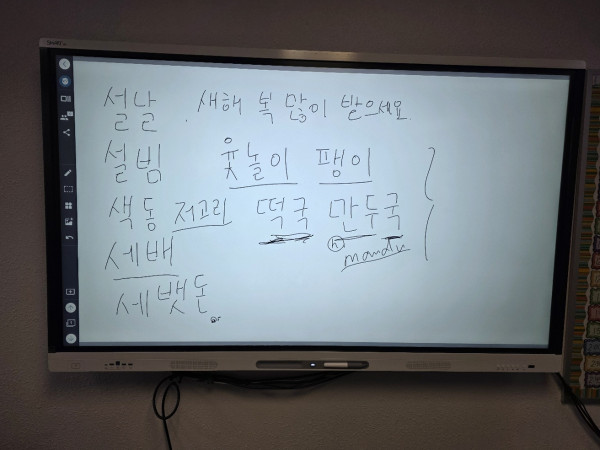 설날 . 새해 복 많이 받으세요.
설빔 윷놀이 팽이
색동 저고리 떡국 만두국
세배 ⓗ mandu
세뱃돈